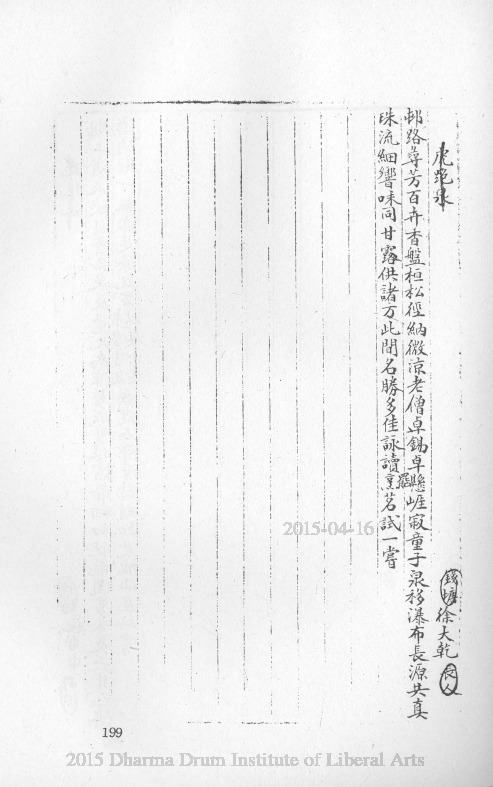 虎跑泉
錢塘徐大乾
邨路尋芳百卉香盤桓松徑納微涼老僧卓錫卓懸崕寂童子泉移瀑布長源共真
珠流細響味同甘露供諸方此間名勝多佳詠讀罷烹茗試一嘗
2015-04-16
199
2015 Dharma Drum Institute of Liberal Arts